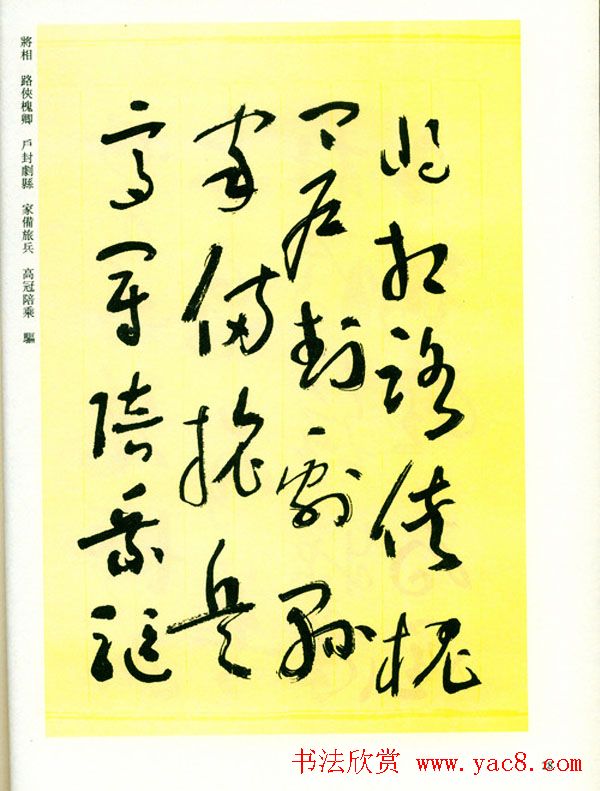 將相路俠槐
卿戶封劇縣
家備旅兵
高冠陪乘驅
將相 路俠槐卿 戶封劇縣 家備旅兵 高冠陪乘 驅
书法欣赏 www.yac8.com